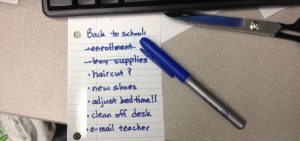 Back to school:
- enrollment
- buy supplies
• haircut?
• new shoes
• adjust bedtime!!
• clean off desk
• e-mail teacher